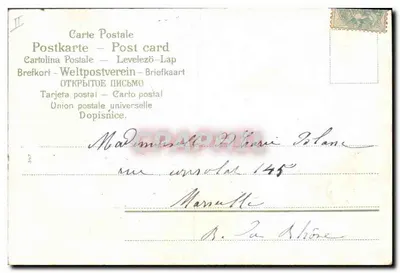 II
Carte Postale
Postkarte – Post card
Cartolina Postale – Levelező-Lap
Brefkort - Weltpostverein - Briefkaart
ОТКРЫТОЕ ПИСЬМО
Tarjeta postal – Carto postal
Union postale universelle
Dopisnice.
Mademoiselle
rue consolat 145
Marseille
B. du Rhône